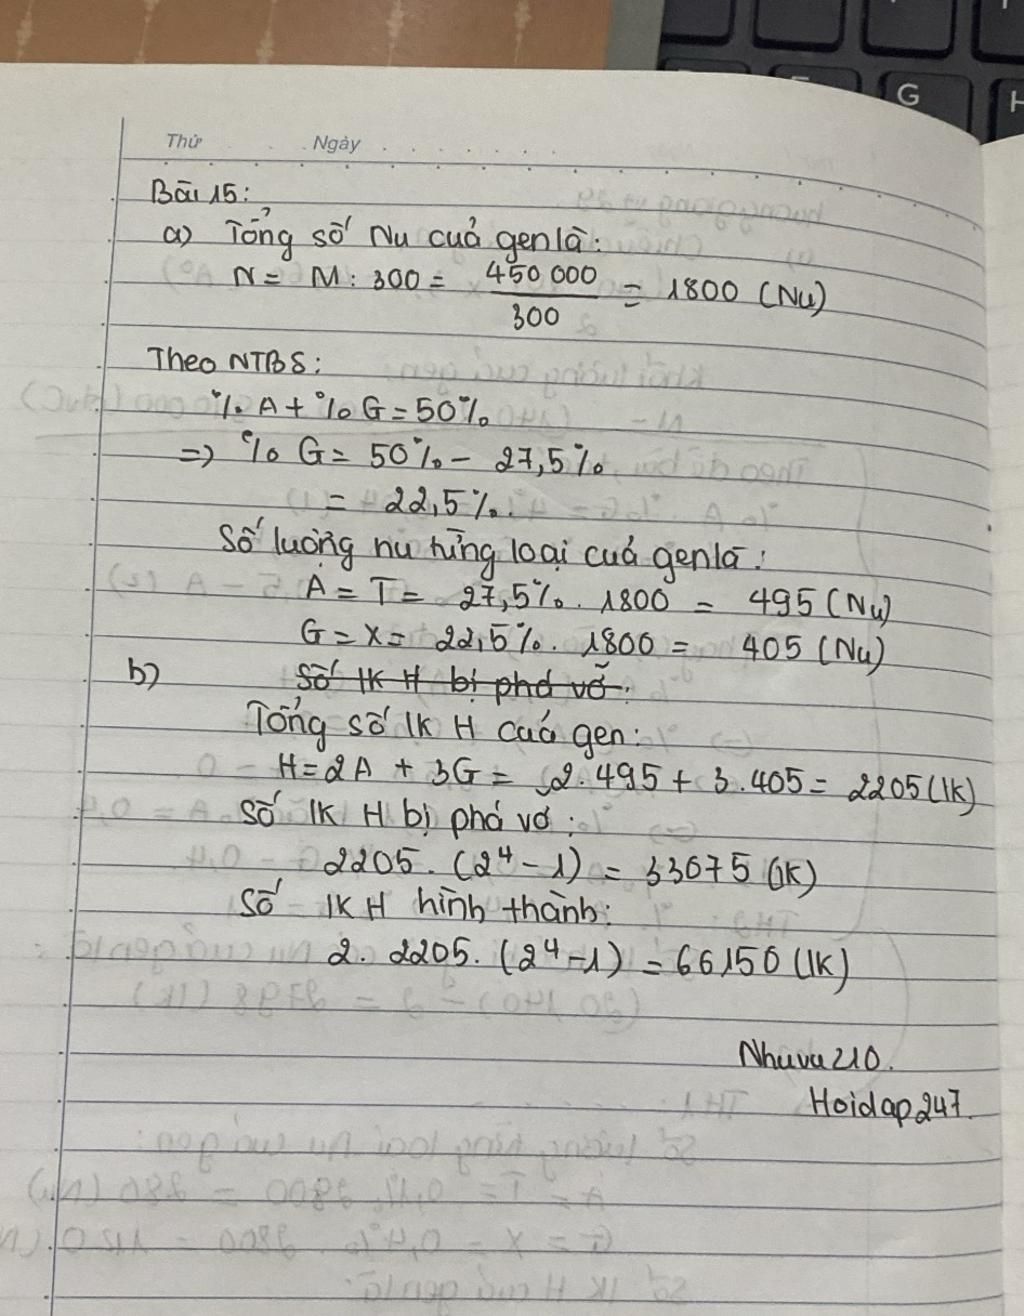 G
H
Thứ . . . Ngày . . . . . . .
Bài 15:
a) Tổng số Nu của gen là:
N = M : 300 = 450 000 / 300 = 1800 (Nu)
Theo NTBS:
% A + % G = 50%
=> % G = 50% - 27,5%
= 22,5%.
Số lượng nu từng loại của gen là:
A = T = 27,5%. 1800 = 495 (Nu)
G = X = 22,5%. 1800 = 405 (Nu)
b) Số lk H bị phá vỡ:
Tổng số lk H của gen:
H = 2A + 3G = 2.495 + 3.405 = 2205 (lk)
Số lk H bị phá vỡ:
2205. (2⁴ - 1) = 33075 (lk)
Số lk H hình thành:
2. 2205. (2⁴ - 1) = 66150 (lk)
Nhuvu210.
Hoidap247.